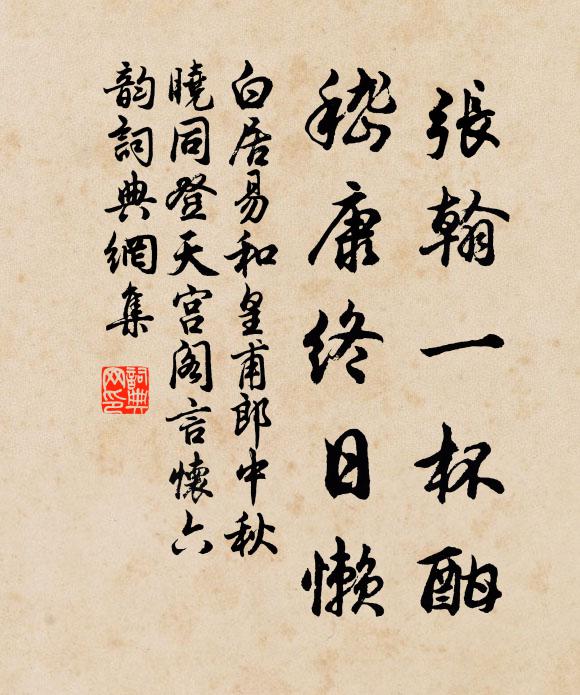 張翰一杯酣
嵇康終日懶
白居易和皇甫郎中秋
曉同登天宮閣言懷六
韵詞典網集
詞典
网印